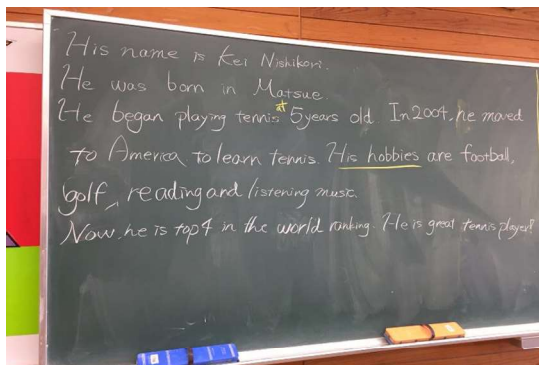 His name is Kei Nishikori.
He was born in Matsue.
He began playing tennis at 5 years old. In 2004, he moved
to America to learn tennis. His hobbies are football,
golf, reading and listening music.
Now, he is top 4 in the world ranking. He is great tennis player!